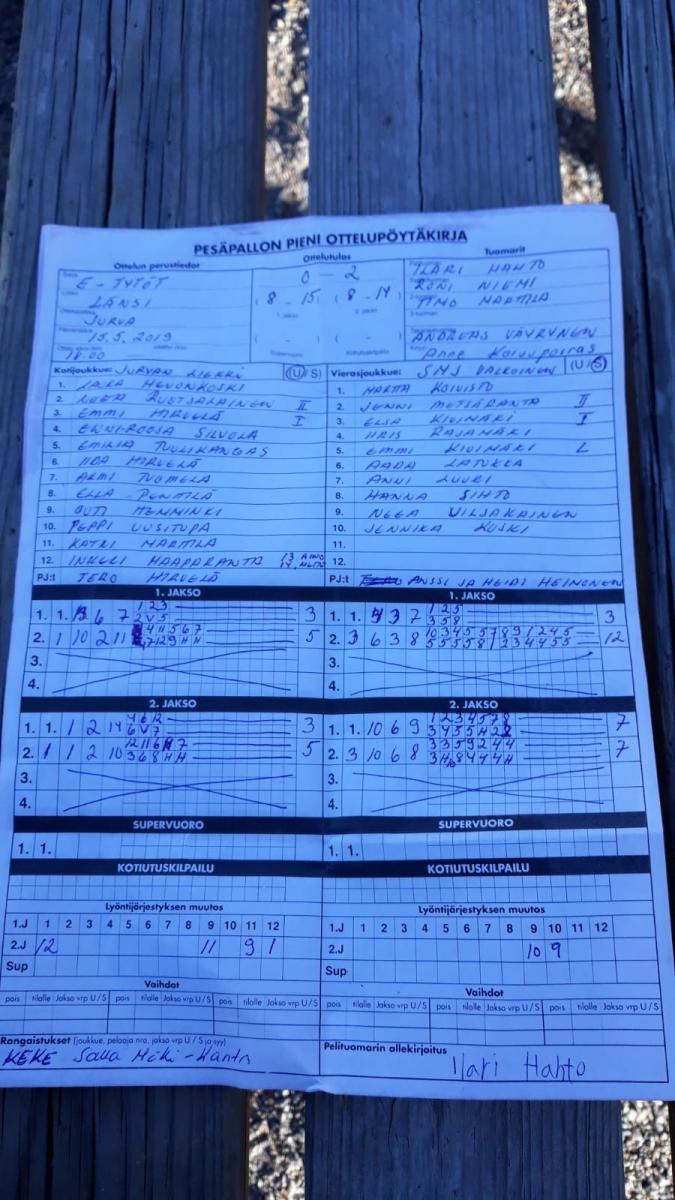 PESÄPALLON PIENI OTTELUPÖYTÄKIRJA
Ottelun perustiedot Ottelutulos Tuomarit
E-TYTÖT 0 - 2 ILARI HAHTO
LÄNSI (8 - 15) (8 - 14) RONI NIEMI
JURVA 1. jakso 2. jakso TIMO MARTTILA
15.5. 2019 ( - ) ( - ) ANDREAS VÄYRYNEN
18.00 Supervuoro Kotiutuskilpailu Anne
Kotijoukkue: JURVAN (U/S)
1. HEVONKOSKI
2. RUOTSALAINEN II
3. EMMI HIRVELÄ I
4. ENNI-ROOSA SILVOLA
5. EMILIA TUULIKANGAS
6. IIDA HIRVELÄ
7. ARMI TUOMELA
8. ELLA PENTTILÄ
9. OUTI HEMMINKI
10. PEPPI UUSITUPA
11. KATRI MARTTILA
12. INKERI HAAPARANTA 13 AINO
PJ:t TERO HIRVELÄ
Vierasjoukkue: SMJ VALKOINEN (U/S)
1. MARTTA KOIVISTO
2. JENNI METSÄRANTA II
3. ELSA KIVIMÄKI I
4. IIRIS RAJAMÄKI
5. EMMI KIVIMÄKI L
6. AADA LATUKKA
7. ANNI LUURI
8. HANNA SIHTO
9. NEEA VILJAKAINEN
10. JENNIKA KOSKI
11.
12.
PJ:t ANSSI JA HEIDI HEINONEN
1. JAKSO
1. 1. 6 7 1 2 3 3
2 V 5
2. 1 10 2 11 4 11 5 6 7 5
3.
4.
1. JAKSO
1. 1. 3 7 1 2 5 3
3 5 8
2. 3 6 3 8 10 3 4 5 5 7 8 9 1 2 4 5 12
3.
4.
2. JAKSO
1. 1. 1 2 14 4 6 12 3
6 V 7
2. 1 1 2 10 5
3 6 8 H H
3.
4.
2. JAKSO
1. 1. 10 6 9 1 2 3 4 5 7 8 7
2. 3 10 6 8 3 3 5 9 2 4 4 7
3.
4.
SUPERVUORO
1. 1.
SUPERVUORO
1. 1.
KOTIUTUSKILPAILU
KOTIUTUSKILPAILU
Lyöntijärjestyksen muutos
1.J 1 2 3 4 5 6 7 8 9 10 11 12
2.J 12 11 9 1
Sup
Lyöntijärjestyksen muutos
1.J 1 2 3 4 5 6 7 8 9 10 11 12
2.J 10 9
Sup
Vaihdot
pois tilalle Jakso vrp U/S pois tilalle Jakso vrp U/S pois tilalle Jakso vrp U/S
Vaihdot
pois tilalle Jakso vrp U/S pois tilalle Jakso vrp U/S pois tilalle Jakso vrp U/S
Rangaistukset (joukkue, pelaaja nro, jakso vrp U / S ja syy)
KEKE Salla
Pelituomarin allekirjoitus
Ilari Hahto